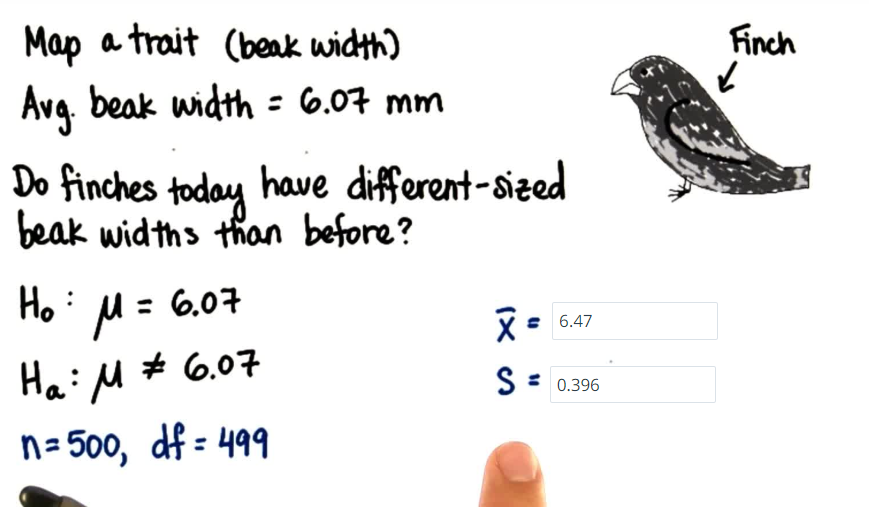 Map a trait (beak width)
Finch
Avg. beak width = 6.07 mm
Do finches today have different-sized
beak widths than before?
H₀: μ = 6.07
Hₐ: μ ≠ 6.07
n=500, df = 499
x̄ = 6.47
S = 0.396